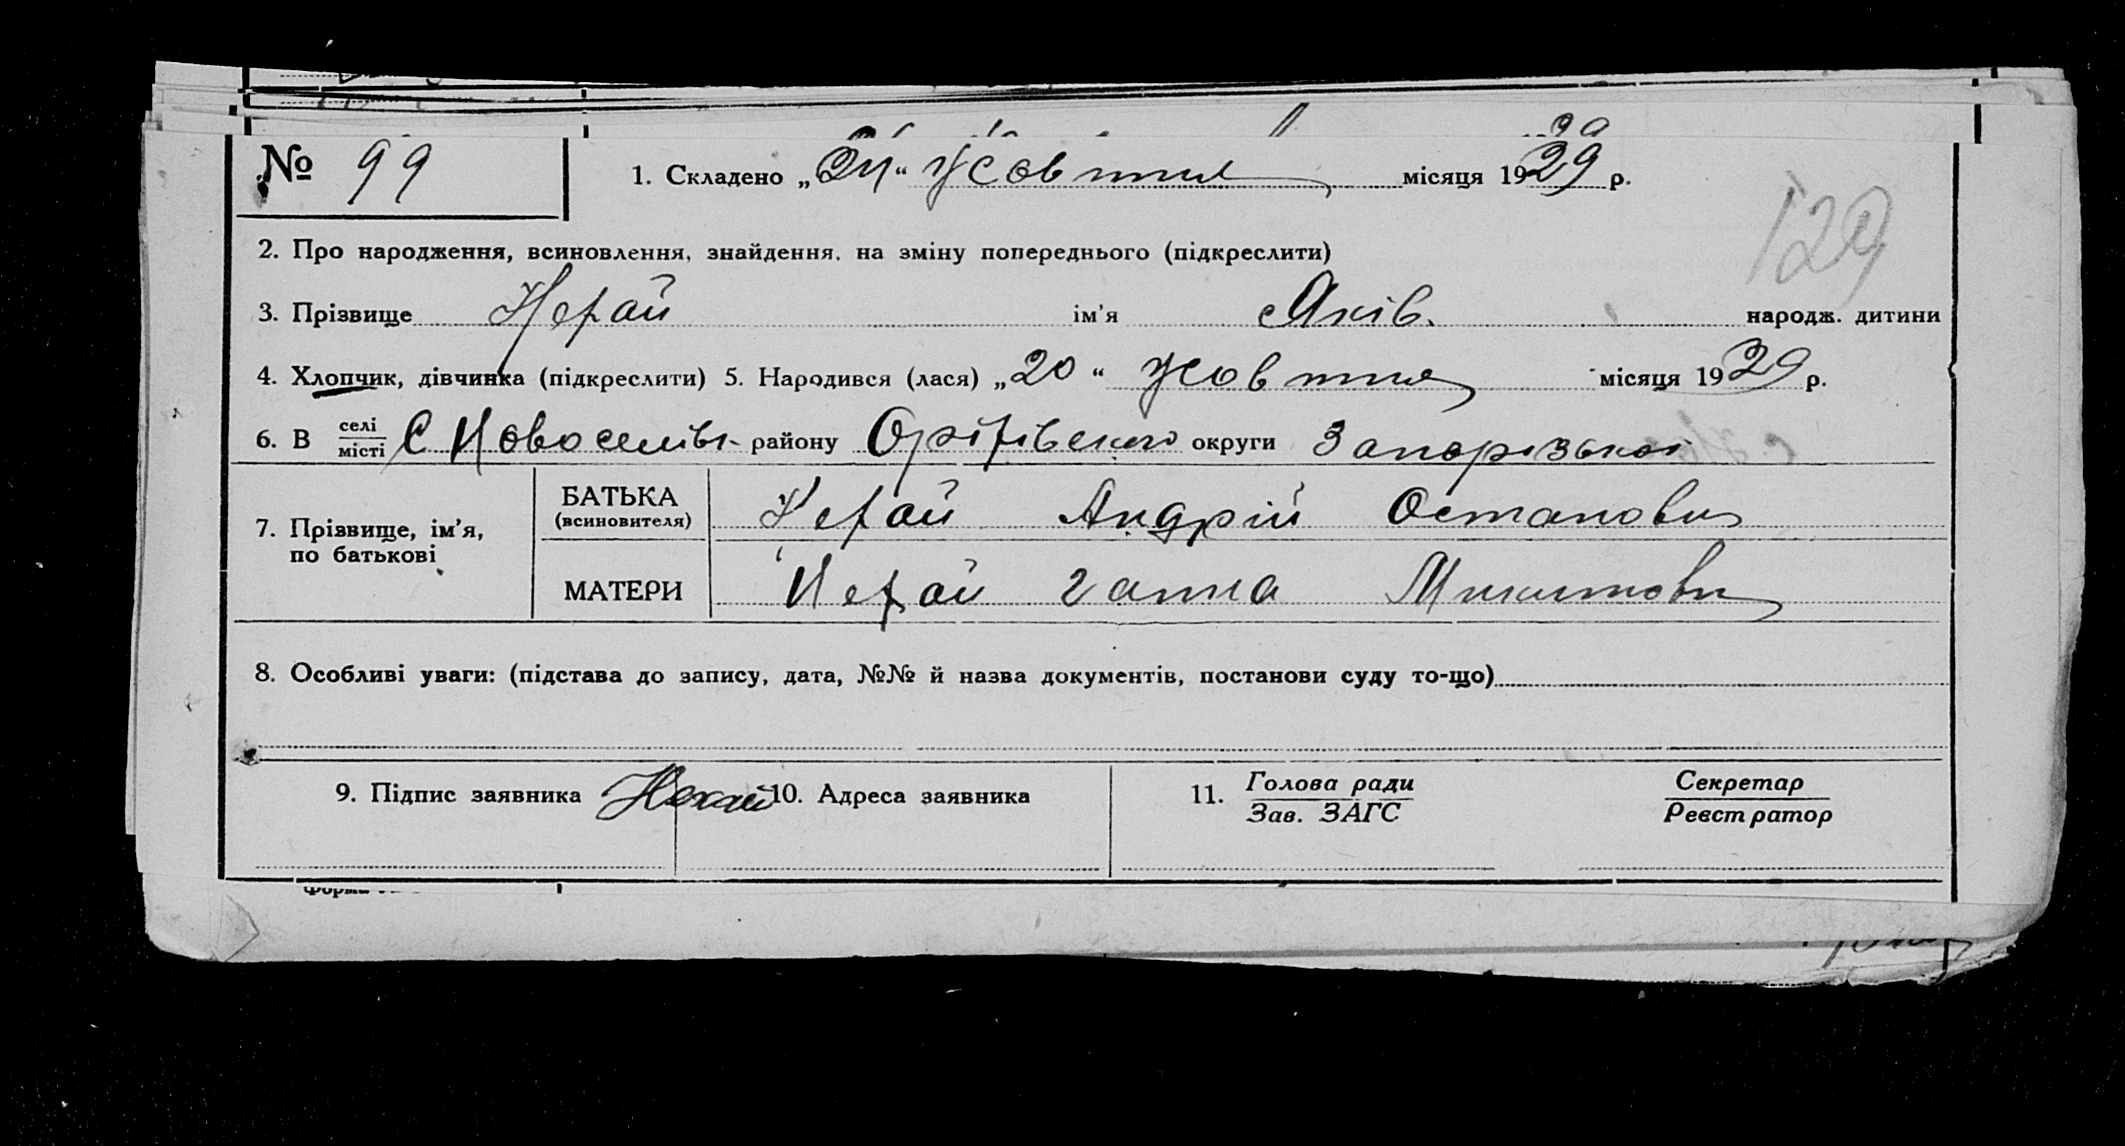 № 99
1. Складено „24“ Жовтня місяця 1929 р.
129
2. Про народження, всиновлення, знайдення, на зміну попереднього (підкреслити)
3. Прізвище Нехай ім'я Яків. народж. дитини
4. Хлопчик, дівчинка (підкреслити) 5. Народився (лася) „20“ Жовтня місяця 1929 р.
6. В селі/місті С Новоселівк району Оріхівського округи Запорізької
7. Прізвище, ім'я, по батькові
БАТЬКА (всиновителя) Нехай Андрій Остапович
МАТЕРИ Нехай Ганна Микитовн
8. Особливі уваги: (підстава до запису, дата, №№ й назва документів, постанови суду то-що)
9. Підпис заявника Нехай 10. Адреса заявника 11. Голова ради Секретар
Зав. ЗАГС Реєстратор
Форма